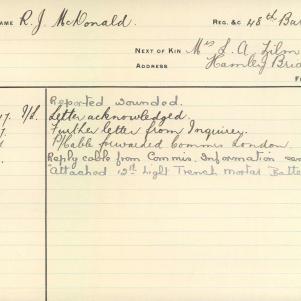 NAME R. J. McDonald. REG. &C. 48th Ba
NEXT OF KIN Mrs L. A.
ADDRESS Hamley Bri
Reported wounded.
7/8. Letter acknowledged.
Further letter from Inquirer.
P/Cable forwarded Commis London.
Reply cable from Commis. Information
"Attached 12th Light Trench Mortar Batte